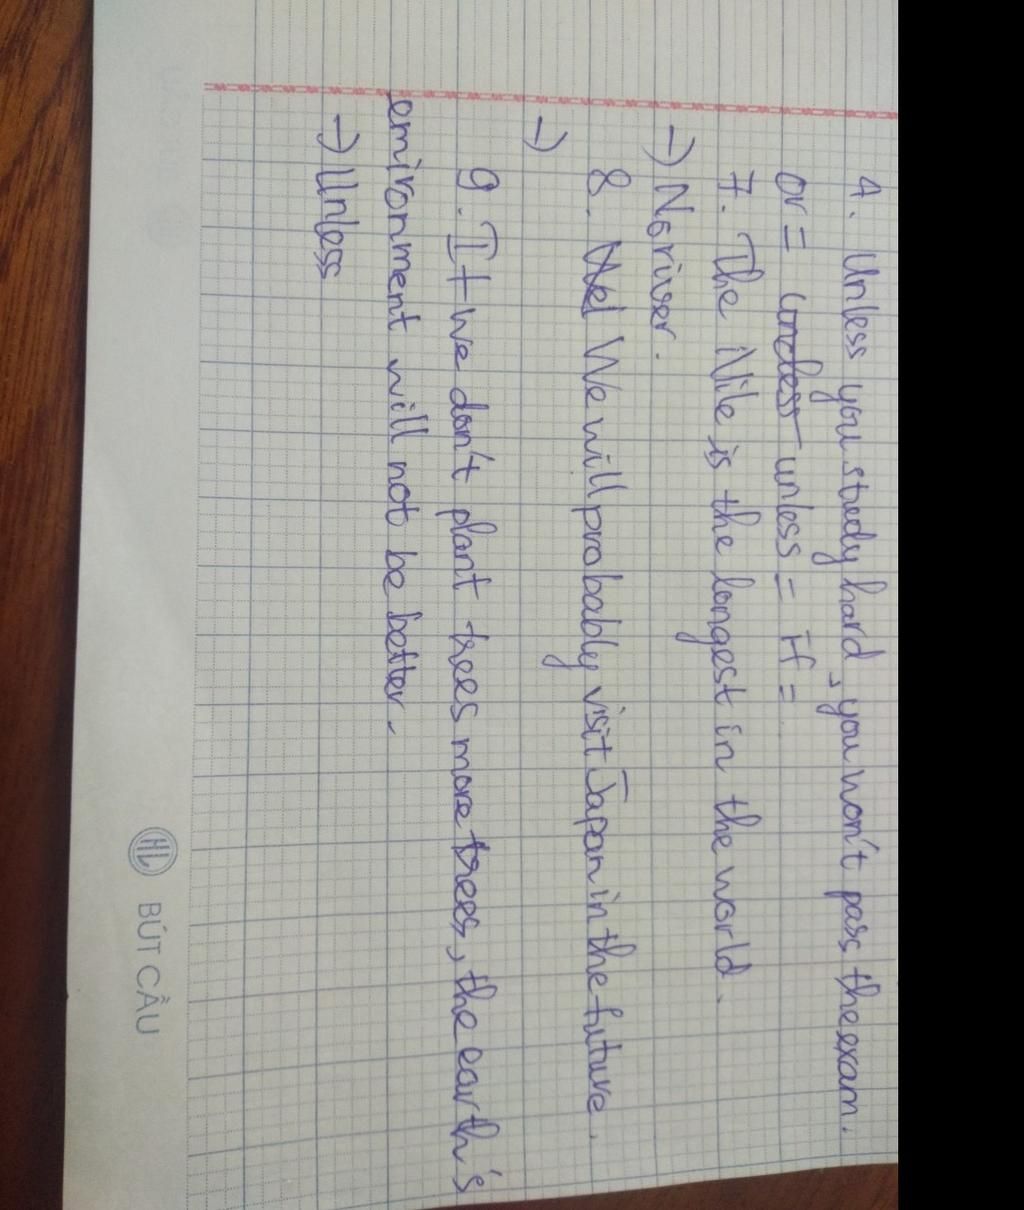 4. Unless you study hard, you won't pass the exam.
or = unless unless = if =
7. The Nile is the longest in the world.
→ No river.
8. We We will probably visit Japan in the future.
→
9. If we don't plant trees more trees, the earth's
emironment will not be better.
→ Unless
HL BÚT CẦU